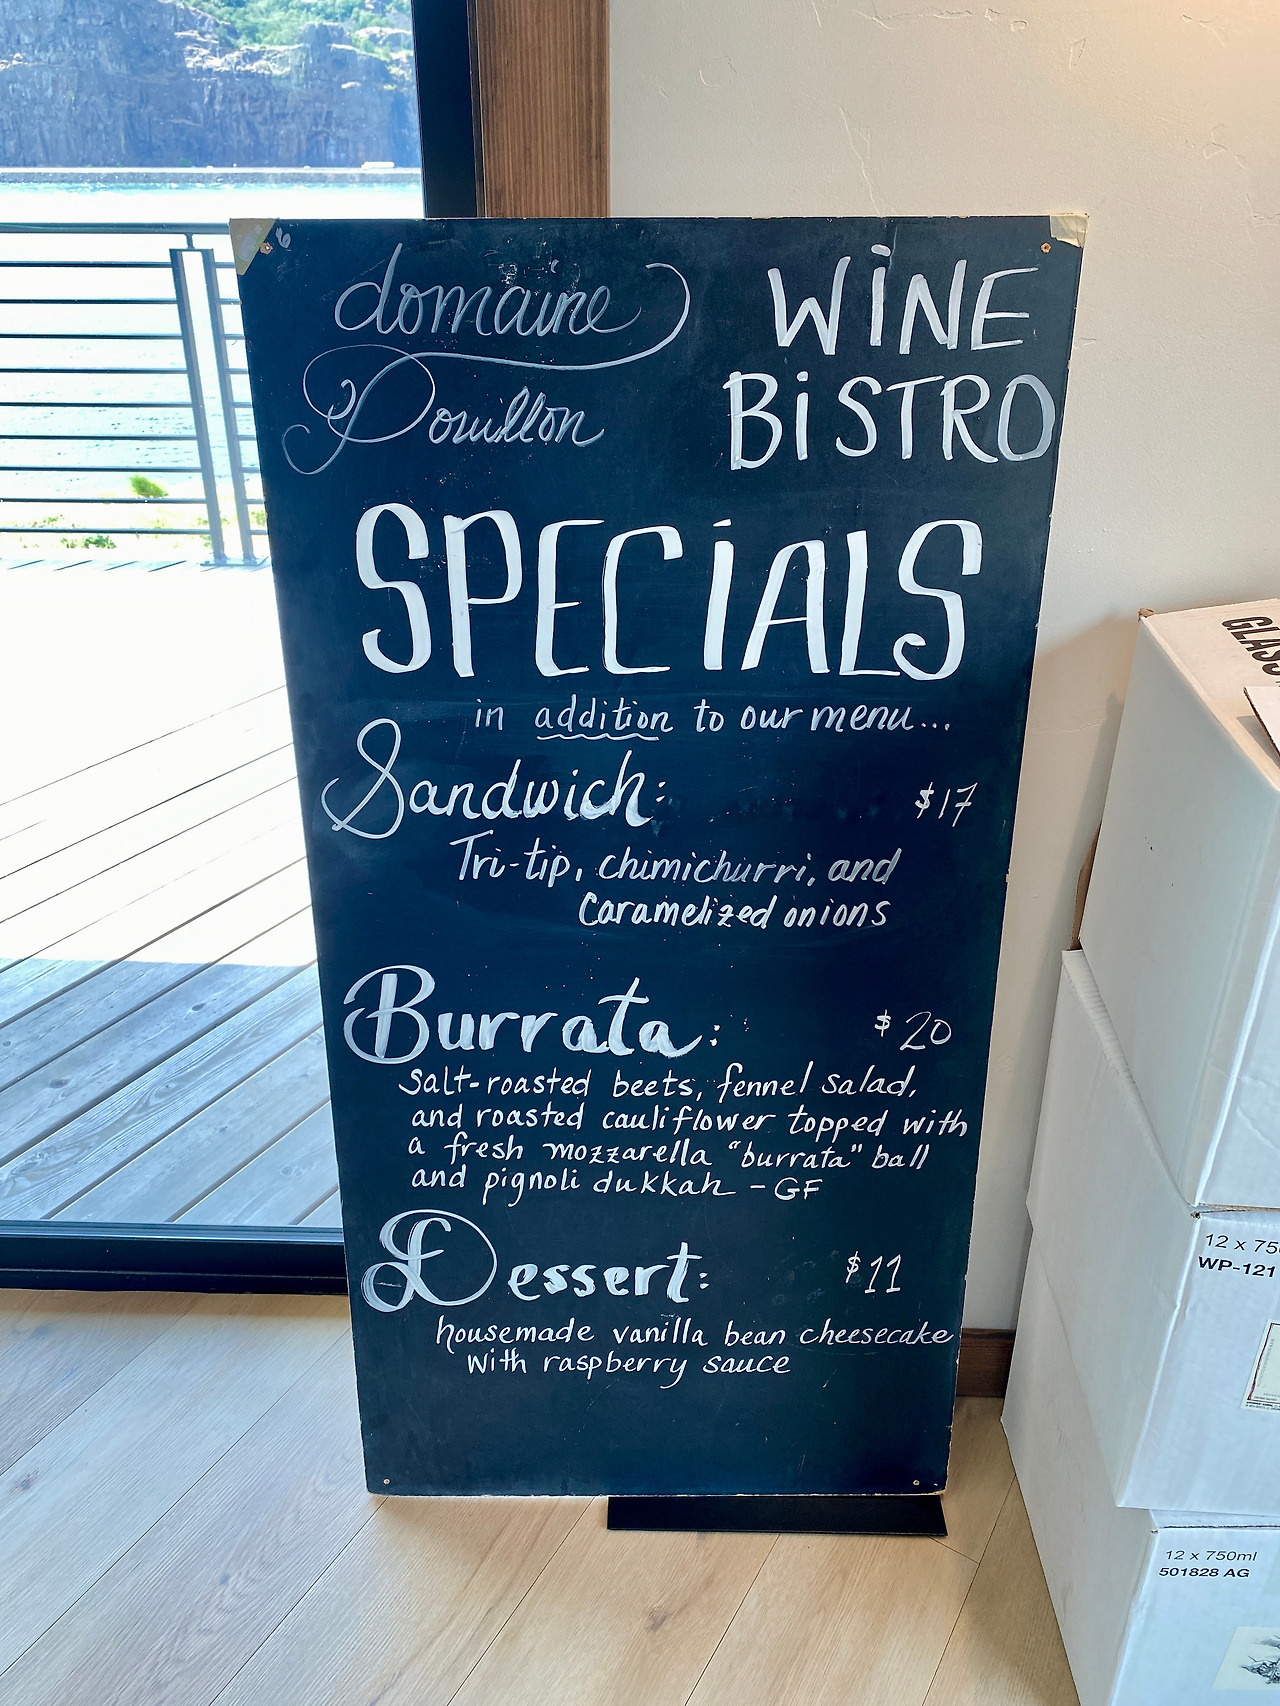 domaine
Pouillon
WiNE
BiSTRO
SPECiALS
in addition to our menu...
Sandwich: $17
Tri-tip, chimichurri, and
Caramelized onions
Burrata: $20
Salt-roasted beets, fennel salad,
and roasted cauliflower topped with
a fresh mozzarella "burrata" ball
and pignoli dukkah - GF
Dessert: $11
housemade vanilla bean cheesecake
with raspberry sauce
12 x 750
WP-121
12 x 750ml
501828 AG